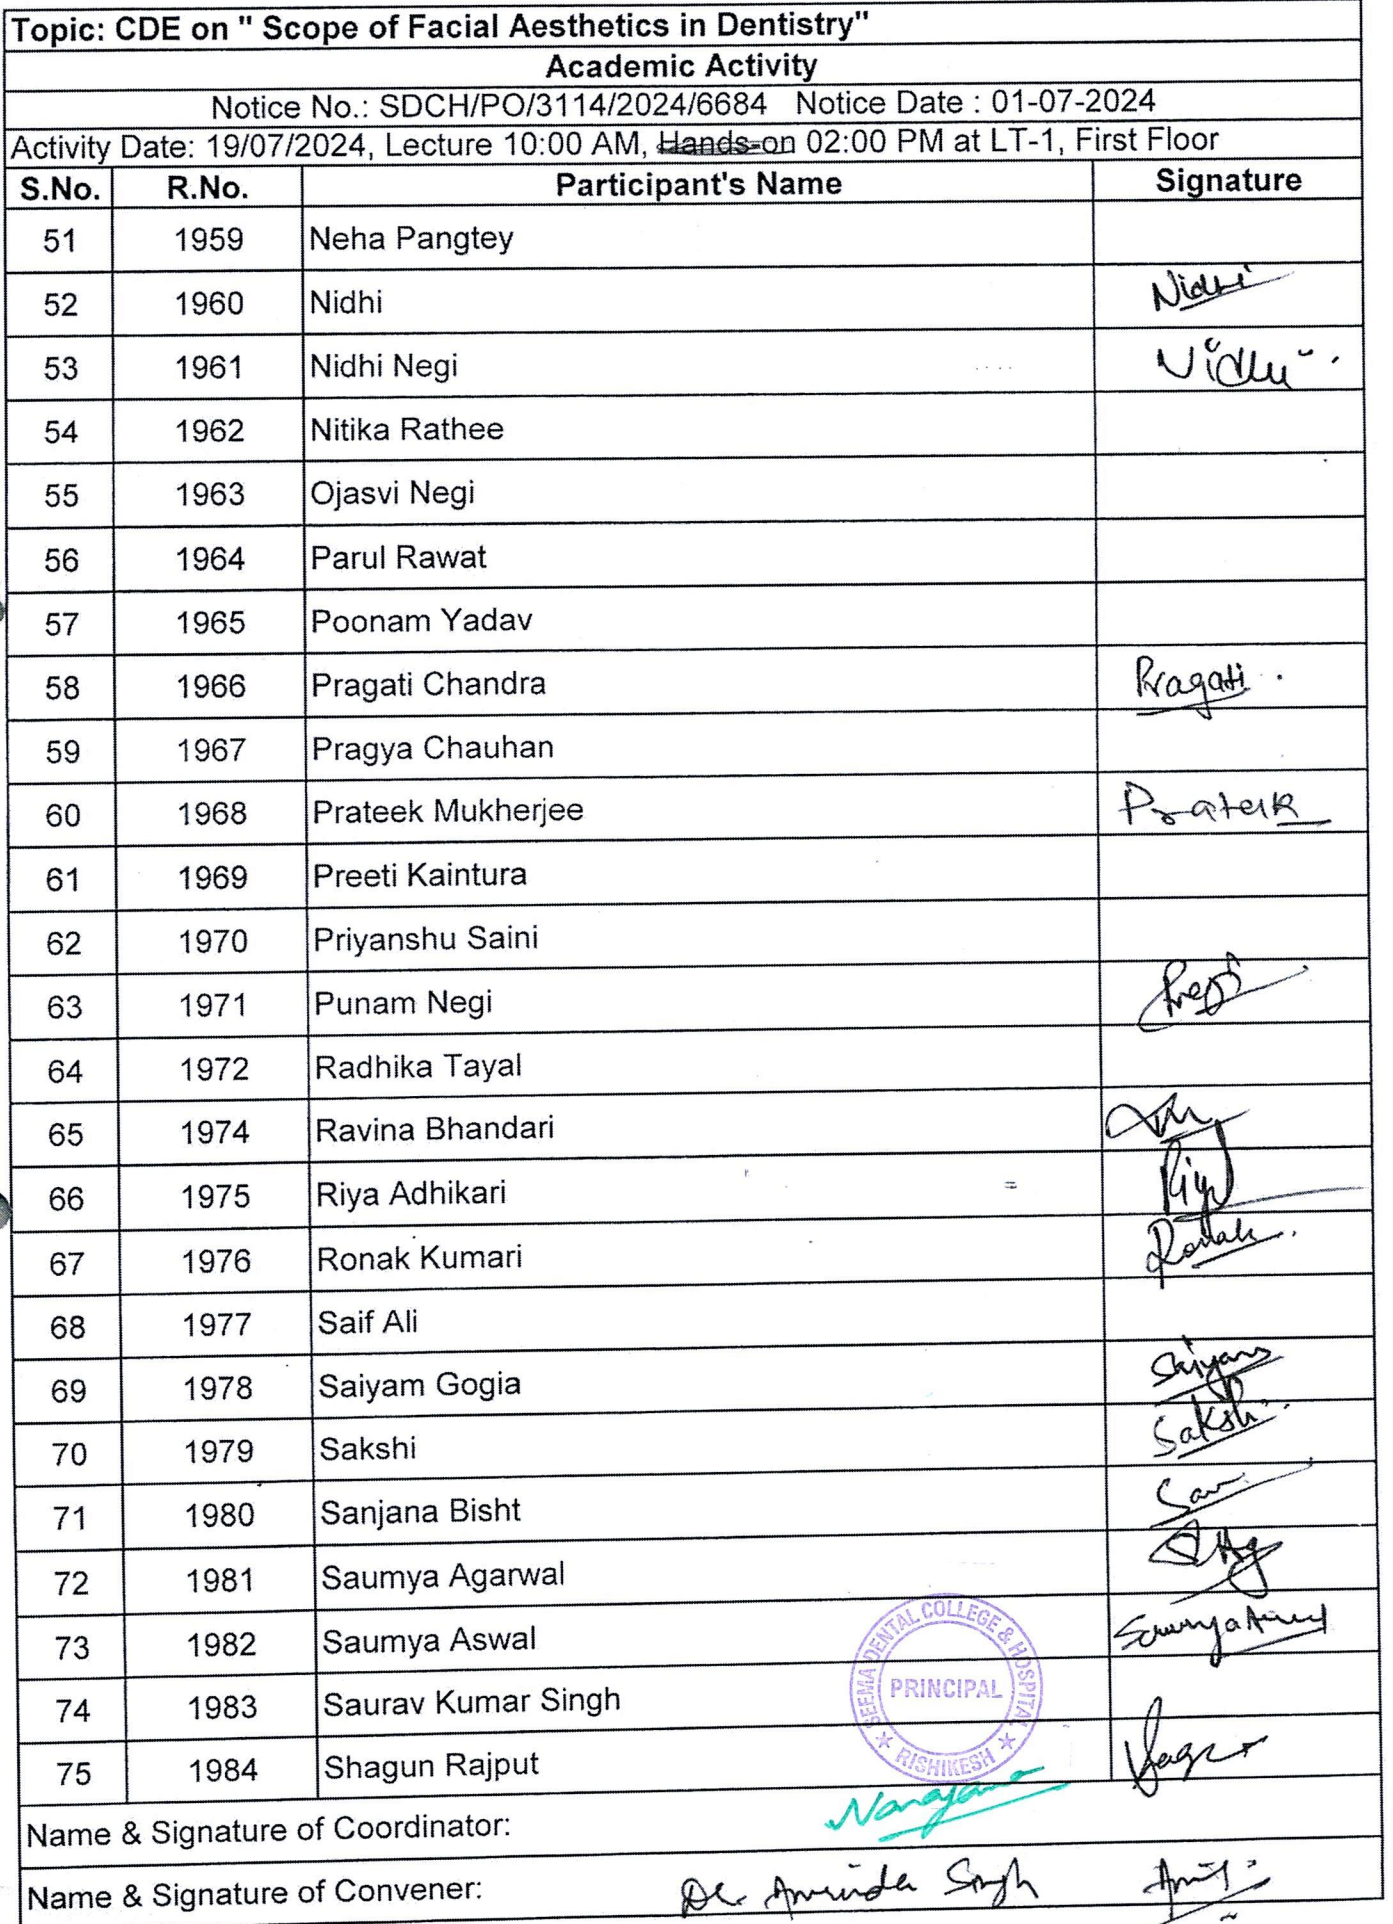 Topic: CDE on " Scope of Facial Aesthetics in Dentistry"
Academic Activity
Notice No.: SDCH/PO/3114/2024/6684 Notice Date : 01-07-2024
Activity Date: 19/07/2024, Lecture 10:00 AM, Hands-on 02:00 PM at LT-1, First Floor
S.No. R.No. Participant's Name Signature
51 1959 Neha Pangtey
52 1960 Nidhi Nidhi
53 1961 Nidhi Negi Nidhi
54 1962 Nitika Rathee
55 1963 Ojasvi Negi
56 1964 Parul Rawat
57 1965 Poonam Yadav
58 1966 Pragati Chandra Pragati
59 1967 Pragya Chauhan
60 1968 Prateek Mukherjee Prateek
61 1969 Preeti Kaintura
62 1970 Priyanshu Saini
63 1971 Punam Negi
64 1972 Radhika Tayal
65 1974 Ravina Bhandari
66 1975 Riya Adhikari Riya
67 1976 Ronak Kumari Ronak
68 1977 Saif Ali
69 1978 Saiyam Gogia Saiyam
70 1979 Sakshi Sakshi
71 1980 Sanjana Bisht
72 1981 Saumya Agarwal
73 1982 Saumya Aswal
74 1983 Saurav Kumar Singh
75 1984 Shagun Rajput
SEEMA DENTAL COLLEGE & HOSPITAL
PRINCIPAL
RISHIKESH
Name & Signature of Coordinator:
Name & Signature of Convener: Dr Singh